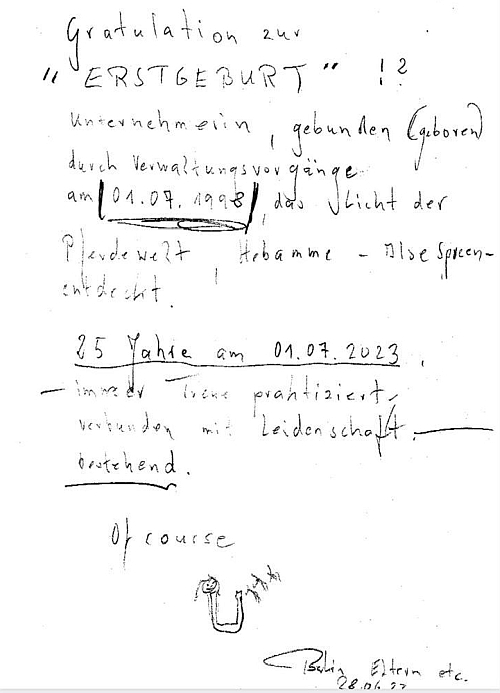 Gratulation zur
"ERSTGEBURT" !?
Unternehmerin, gebunden (geboren)
durch Verwaltungsvorgänge
am 01.07.1998, das Licht der
Pferdewelt, Hebamme -
entdeckt.
25 Jahre am 01.07.2023,
- immer Treue praktiziert,
verbunden mit Leidenschaft.
bestehend.
Of course
Eltern etc.